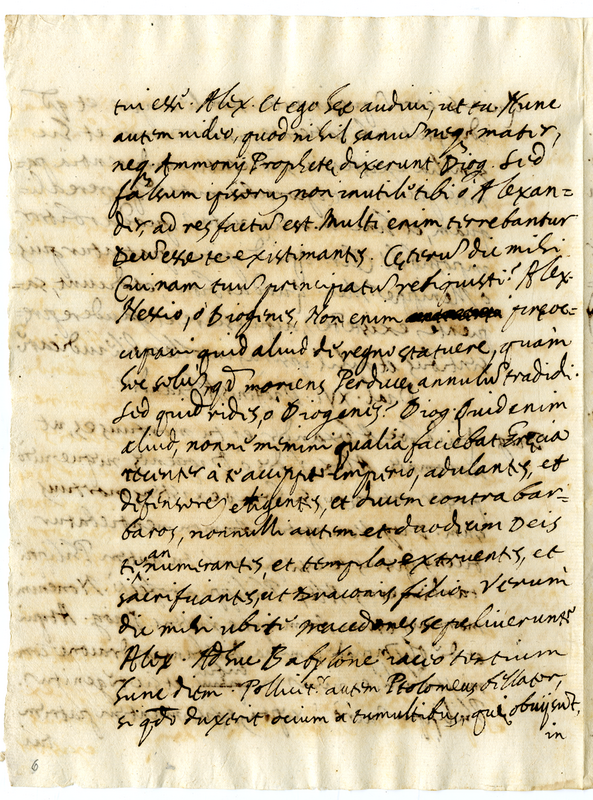 tui esse. Alex. Et ego hec audivi, ut tu. Nunc
autem video, quod nihil sanum neq. mater,
neq. Ammonij Prophete dixerunt Diog. Sed
falsum ipsorum non inutile tibi ò Alexan=
der, ad res factum est. Multi enim terrebantur
Deum esse te existimantes. Ceterum dic mihi
Cuinam tuum principatum reliquisti? Alex.
Nescio, ò Diogenes, Non enim preoc=
cupavi quid aliud de regno statuere, quàm
hoc solum, qd moriens Perdicce annulum tradidi.
Sed quid rides, o Diogenes? Diog Quid enim
aliud, nonne memini qualia faciebat Grecia
recenter à te accepto Imperio, adulantes, et
defensorem eligentes, et ducem contra bar=
baros, nonnulli autem et duodecim Deis
te annumerantes, et templa extruentes, et
sacrificantes, ut Draconis filio. Verum
dic mihi ubi te Macedones sepeliverunt
Alex. Adhuc Babylone iaceo tertium
hunc diem. Pollicet. autem Ptolomeus satelles,
si qdo duxerit ocium à tumultibus, qui obuij sunt,
in
6